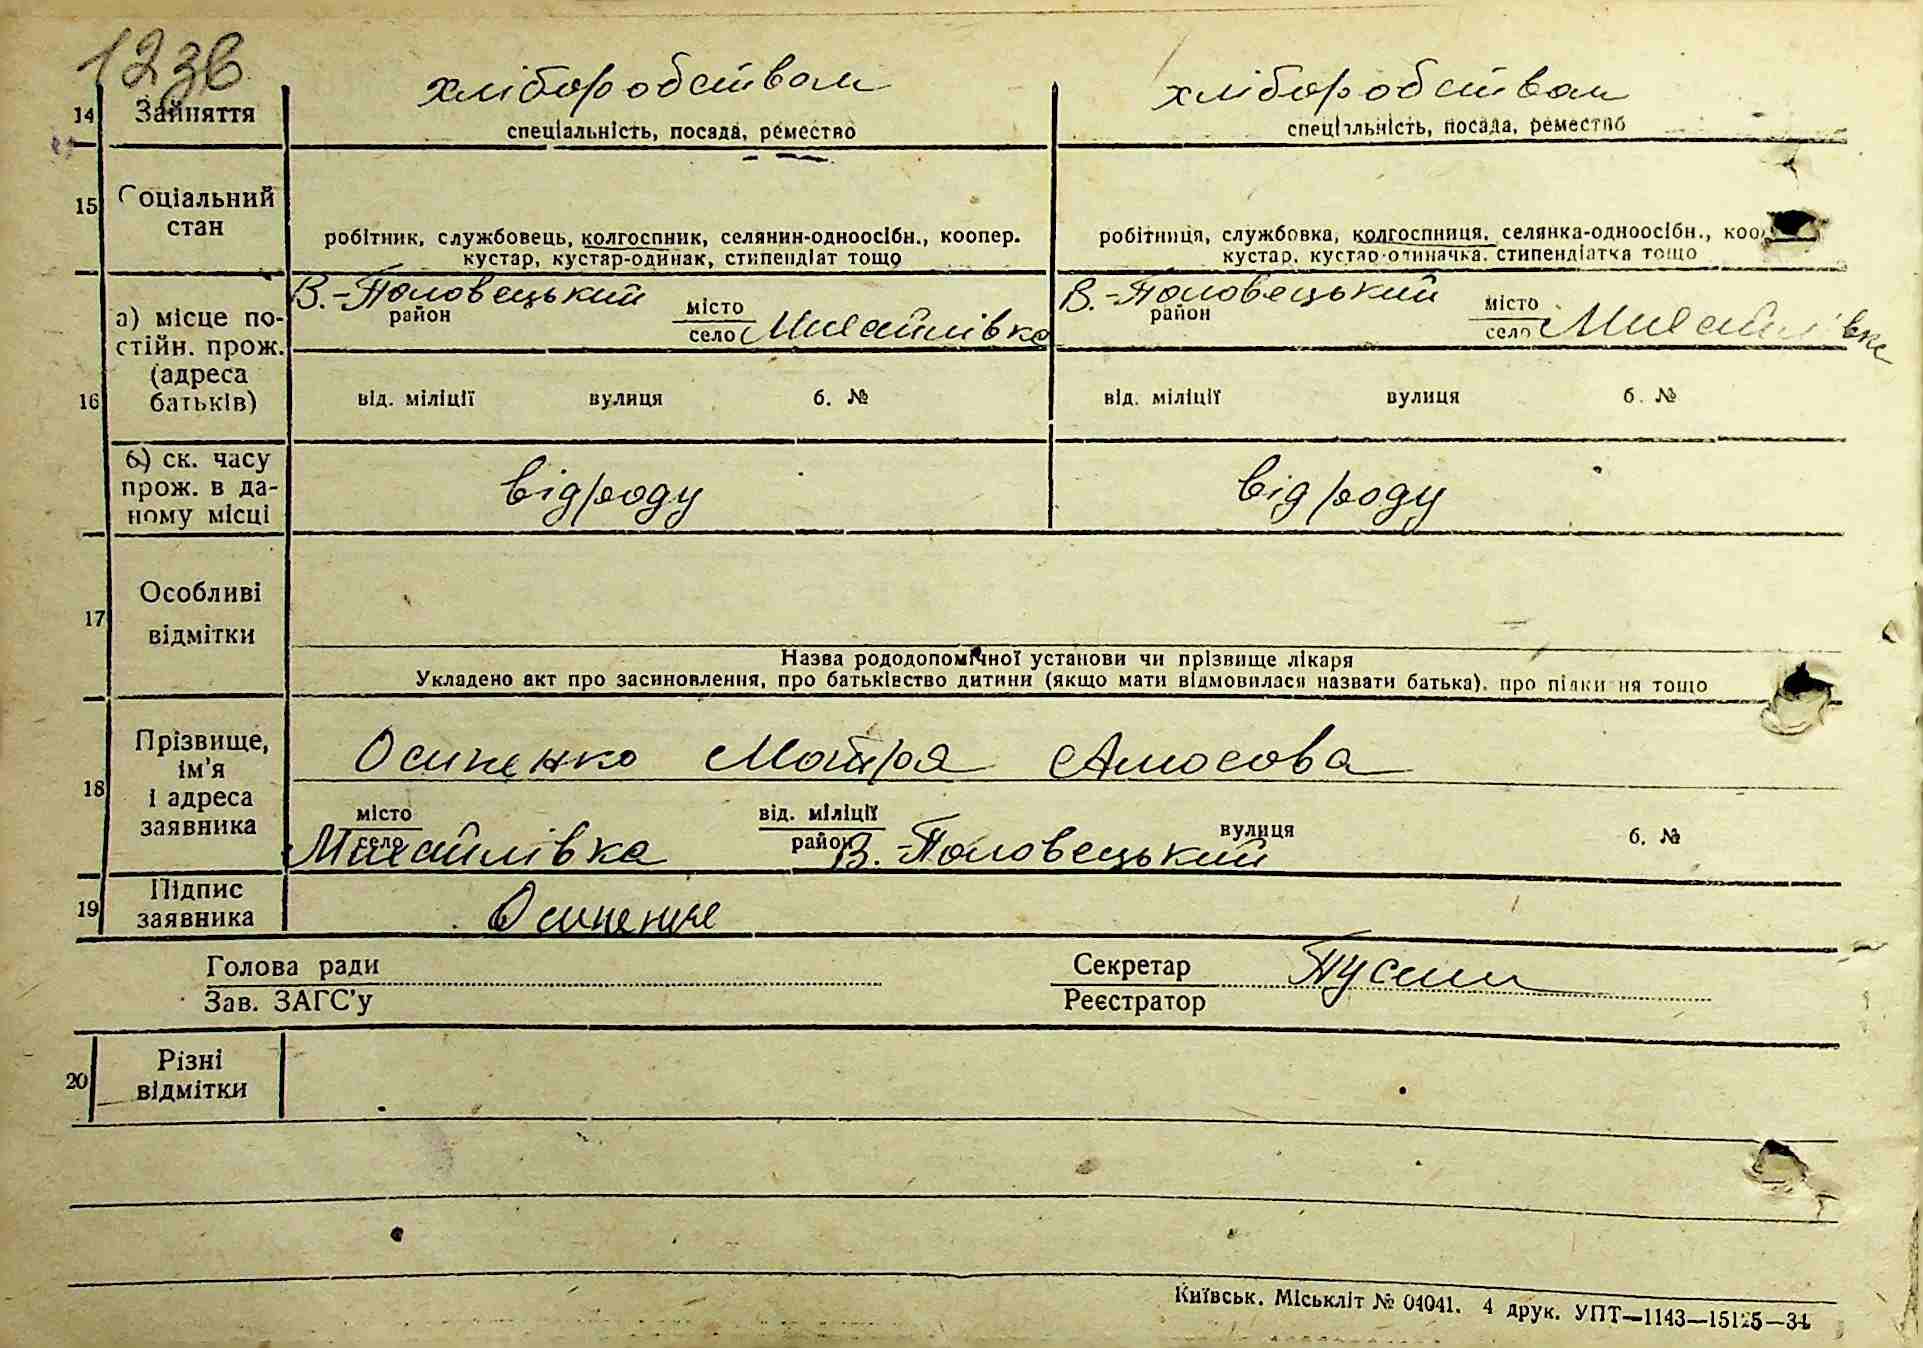 123в
14 Зайняття хліборобством хліборобством
спеціальність, посада, ремество спеціяльність, посада, ремество
15 Соціальний стан
робітник, службовець, колгоспник, селянин-одноосібн., коопер. робітниця, службовка, колгоспниця, селянка-одноосібн., кооп
кустар, кустар-одинак, стипендіат тощо кустар, кустар-одиначка, стипендіатка тощо
16 а) місце постійн. прож. (адреса батьків)
В.-Половецький район місто село Михайлівка В.-Половецький район місто село Михайлівка
від. міліції вулиця б. № від. міліції вулиця б. №
б) ск. часу прож. в даному місці
від роду від роду
17 Особливі відмітки
Назва рододопомічної установи чи прізвище лікаря
Укладено акт про засиновлення, про батьківство дитини (якщо мати відмовилася назвати батька), про підки ня тощо
18 Прізвище, ім'я і адреса заявника
Осипенко Мотря Амосова
місто село Михайлівка від. міліції район В.-Половецький вулиця б. №
19 Підпис заявника Осипенко
Голова ради Секретар
Зав. ЗАГС'у Реєстратор
20 Різні відмітки
Київськ. Міськліт № 04041. 4 друк. УПТ—1143—15125—34